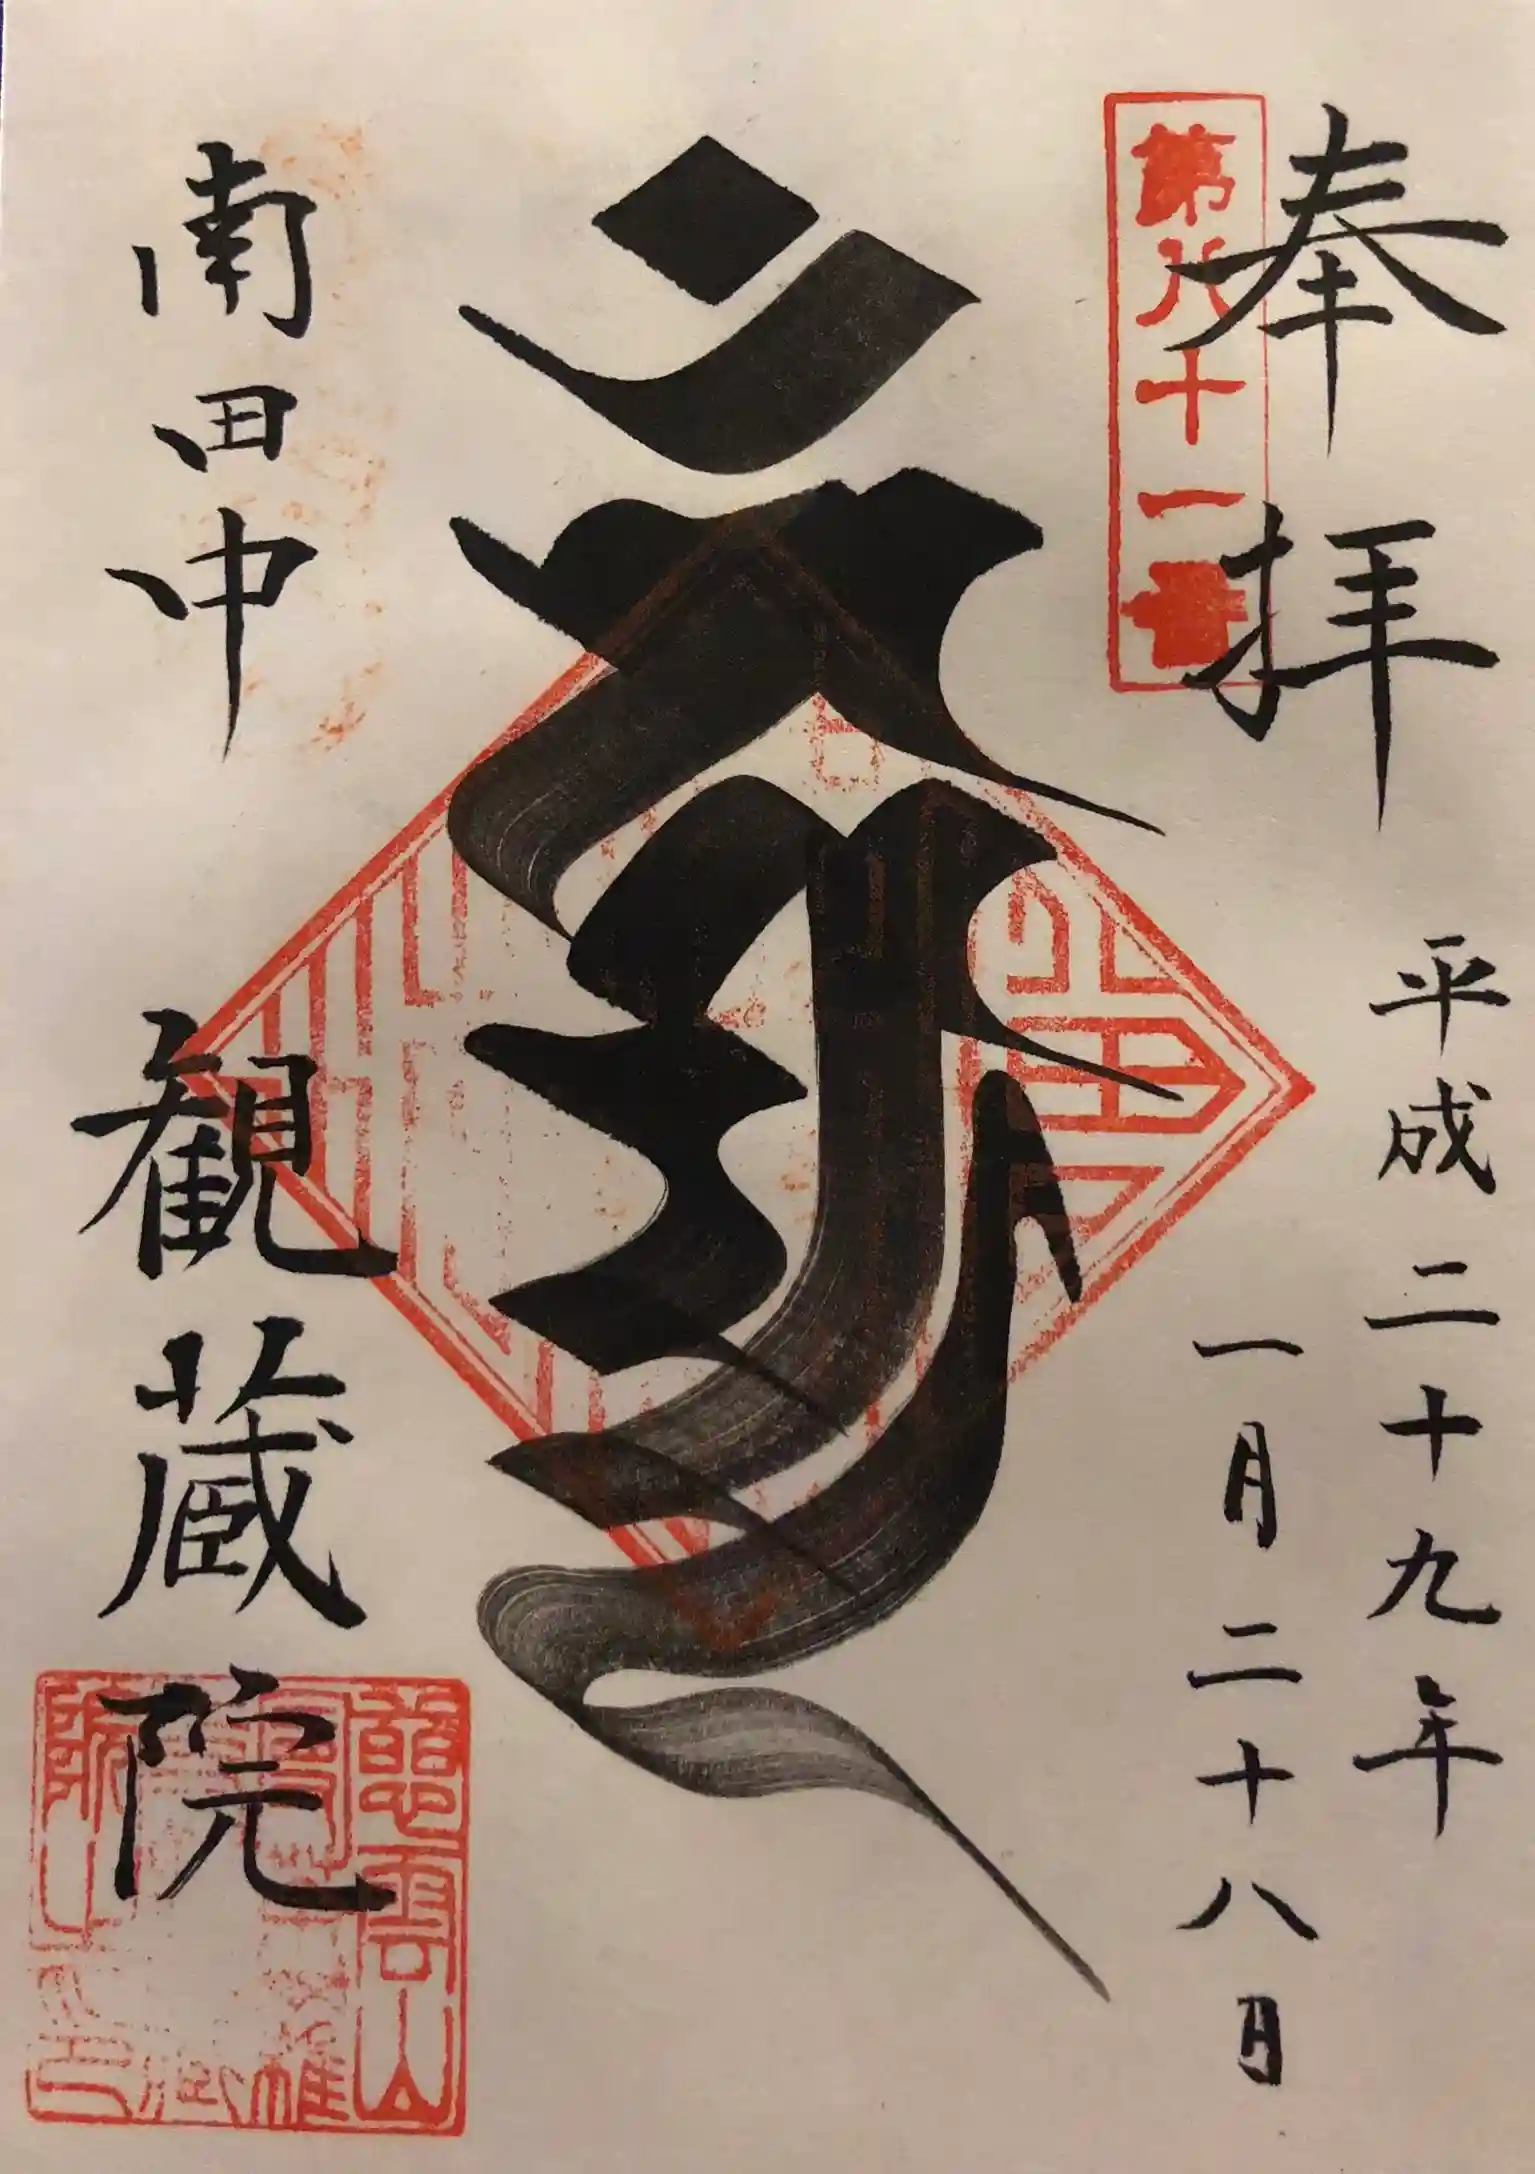 奉拝
第八十一番
平成二十九年
一月二十八日
南田中
観蔵院
慈雲山